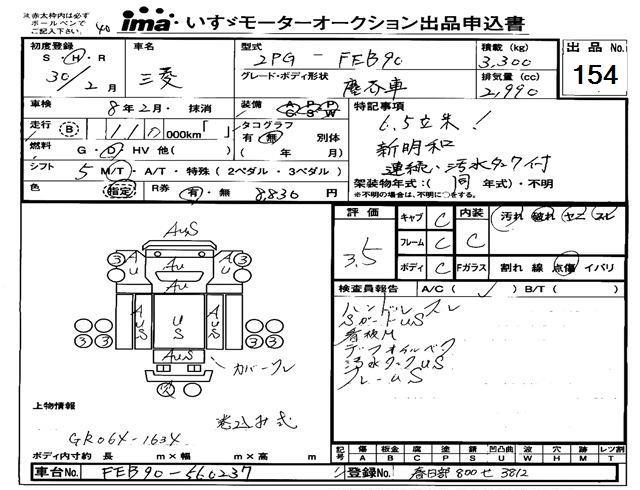 ※赤太枠内は必ず
ボールペンで
ご記入下さい。
40
ima いすゞモーターオークション出品申込書
初度登録
S・H・R
30/2月
車名
三菱
型式
2PG - FEB90
グレード・ボディ形状
塵芥車
積載(kg)
3,300
排気量(cc)
2,990
出品No.
154
車検
8年2月・抹消
装備
A P P
G S W
特記事項
6.5立米!
新明和
連続・汚水タンク付
架装物年式:(同 年式)・不明
※不明の場合は、不明に○をする。
走行
B
110
000km「 」
タコグラフ
有・無 別体
( 年 月)
燃料
G・D・HV 他( )
シフト
5 M/T・A/T・特殊(2ペダル・3ペダル)
色
指定
R券
有・無 8,830円
評価
3.5
キャブ C
フレーム C
ボディ C
内装 C
汚れ 破れ ヤニ スレ
Fガラス
割れ 線 点傷 イバリ
検査員報告
A/C( ✓ ) B/T( )
ハンドルスレ
SガードUS
看板M
デフオイル
汚水タンクUS
フレームUS
AUS
AU
3
AU
AU
3
AUS
US
AUS
AUS
カバーワレ
3 3
3 3
上物情報
巻込み式
GR064-1634
ボディ内寸約 長 m×幅 m×高 m
記号
傷 A
板金 B
腐 C
塗 P
錆 S
凹凸曲 U
波 W
穴 H
跡 M
レツ割 T
車台No.
FEB90-560237
登録No.
春日部 800 せ 3812